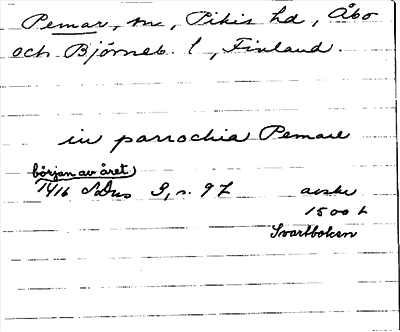 Pemar, sn, Pikis hd, Åbo
och Björneb. l, Finland.
in parrochia Pemare
början av året
1416 SDns 3, s. 97 avskr
1500 t
Svartboken